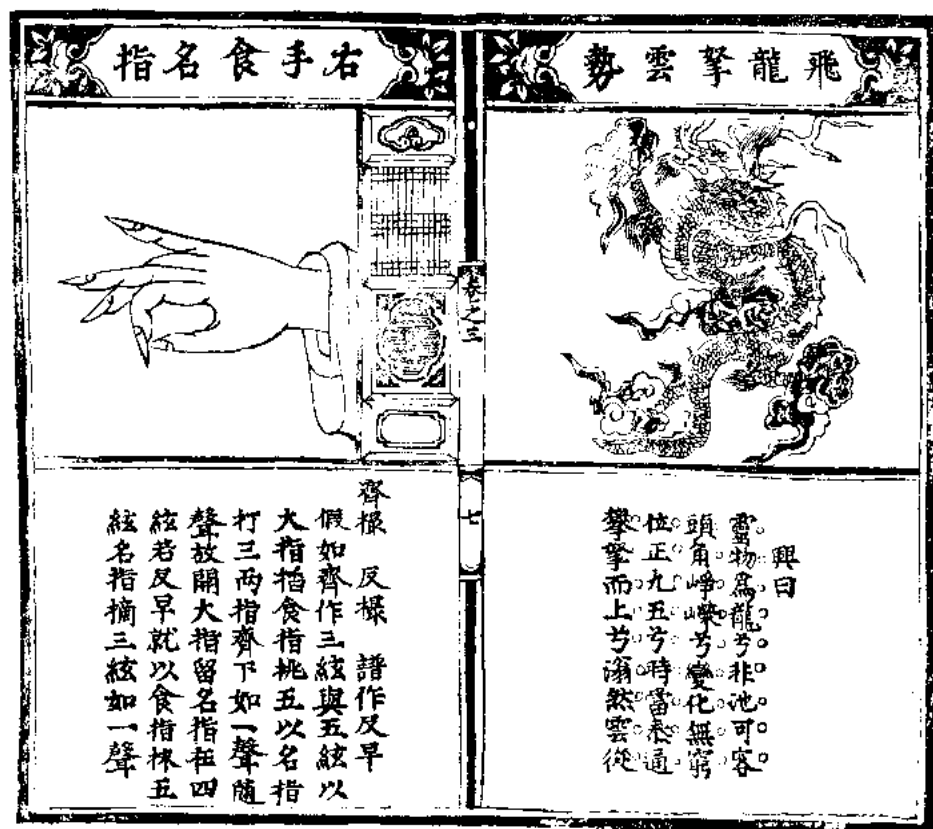 飛龍拏雲勢
興曰
靈物為龍兮非池可容
頭角崢嶸兮變化無窮
位正九五兮時當泰通
攀拏而上兮滃然雲從
卷之三
七
右手食名指
齊撮 反撮 譜作反早
假如齊作三絃與五絃以
大指搯食指挑五以名指
打三兩指齊下如一聲隨
聲放開大指留名指在四
絃若反早就以食指抹五
絃名指摘三絃如一聲